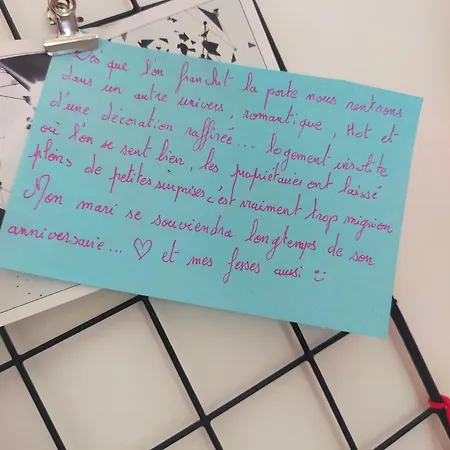 Dès que l'on franchit la porte nous rentrons
dans un autre univers, romantique, Hot et
d'une décoration raffinée... logement insolite
où l'on se sent bien, les propriétaires ont laissé
pleins de petites surprises c'est vraiment trop mignion
Mon mari se souviendra longtemps de son
anniversaire... ♡ et mes fesses aussi :)